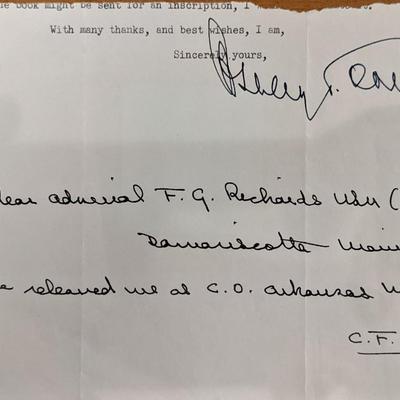 he book might be sent for an inscription, I
With many thanks, and best wishes, I am,
Sincerely yours,
Rear admiral F. G. Richards USN (
Damariscotta Maine
released me as C.O. Arkansas
C. F.